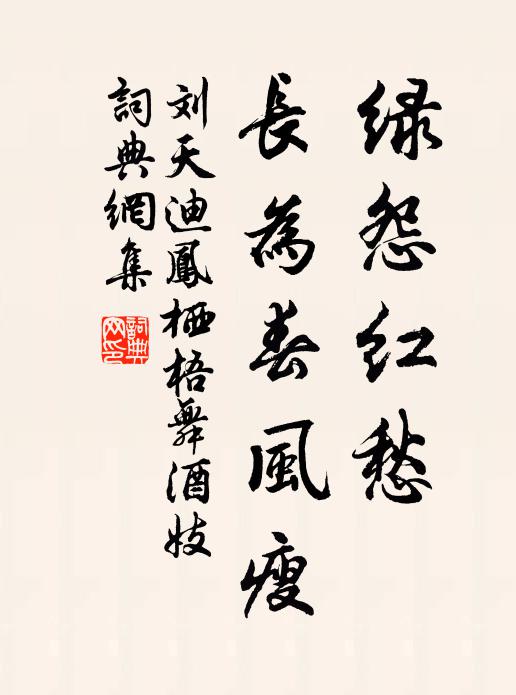 绿怨红愁
長為春風瘦
刘天迪鳳栖梧舞酒妓
詞典網集
詞典网印